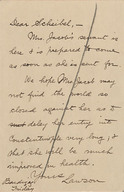 Dear Scheibel,—
Mrs. Jacob's servant is
here & is prepared to come
as soon as she is sent for.
We hope Mrs. Jacob may
not find the world so
closed against her as to
delay her entry into
Constantinople very long, &
that she will be much
improved in health.
Yours
Lawson